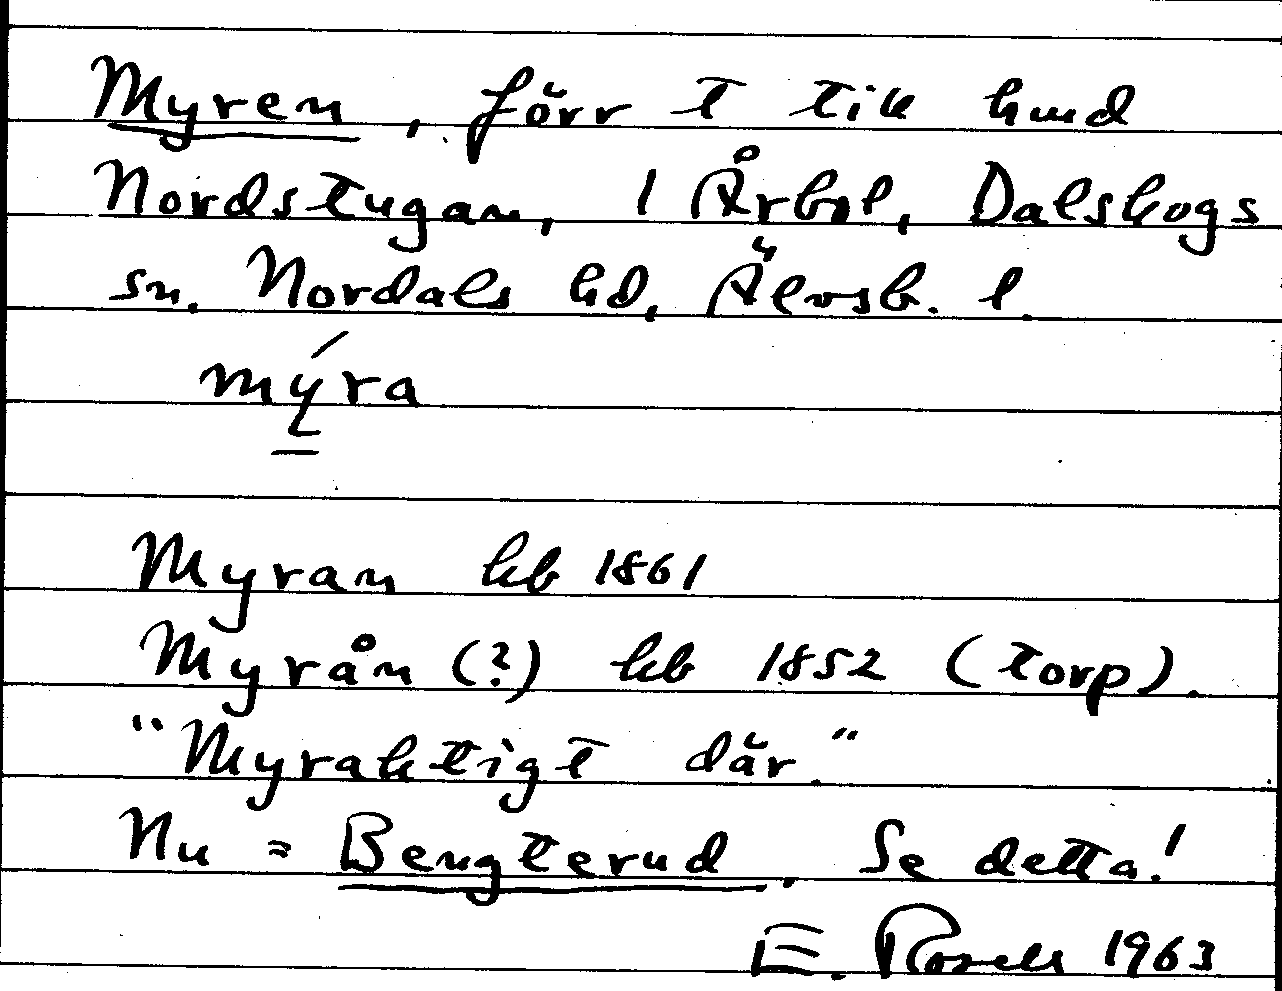 Myren, förr t till hmd
Nordstugan, 1 Årbol, Dalskogs
sn. Nordals hd, Älvsb. l.
mýra
Myran hb 1861
Myrån (?) hb 1852 (torp).
"Myraktigt där."
Nu = Bengterud. Se detta!
E. Rosell 1963